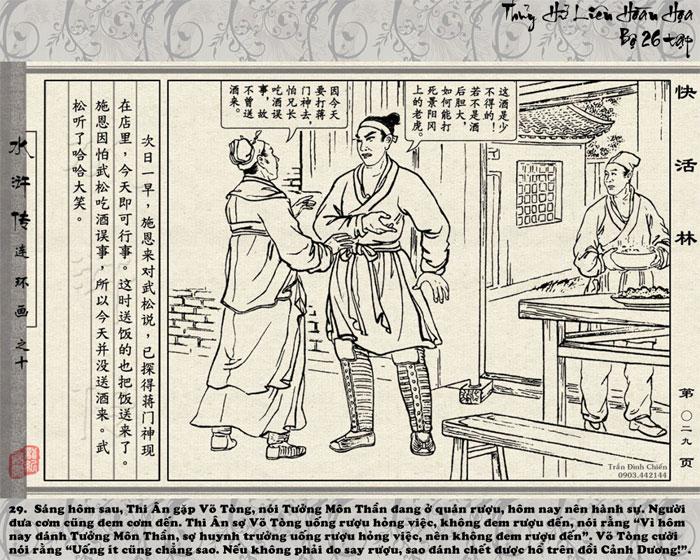 Thủy Hử Liên Hoàn Họa
Bộ 26 tập
快活林
第〇二九页
水浒传连环画之十
这酒是少
不得的！
若不是酒
后胆大，
如何能打
死景阳冈
上的老虎。
因今天
要打蒋
门神去，
怕兄长
吃酒误
事，故
不曾送
酒来。
次日一早，施恩来对武松说，已探得蒋门神现
在店里，今天即可行事。这时送饭的也把饭送来了。
施恩因怕武松吃酒误事，所以今天并没送酒来。武
松听了哈哈大笑。
Trần Đình Chiến
0903.442144
29. Sáng hôm sau, Thi Ân gặp Võ Tòng, nói Tưởng Môn Thần đang ở quán rượu, hôm nay nên hành sự. Người
đưa cơm cũng đem cơm đến. Thi Ân sợ Võ Tòng uống rượu hỏng việc, không đem rượu đến, nói rằng "Vì hôm
nay đánh Tưởng Môn Thần, sợ huynh trưởng uống rượu hỏng việc, nên không đem rượu đến". Võ Tòng cười
nói rằng "Uống ít cũng chẳng sao. Nếu không phải do say rượu, sao đánh chết được hổ trên đồi Cảnh Dương."